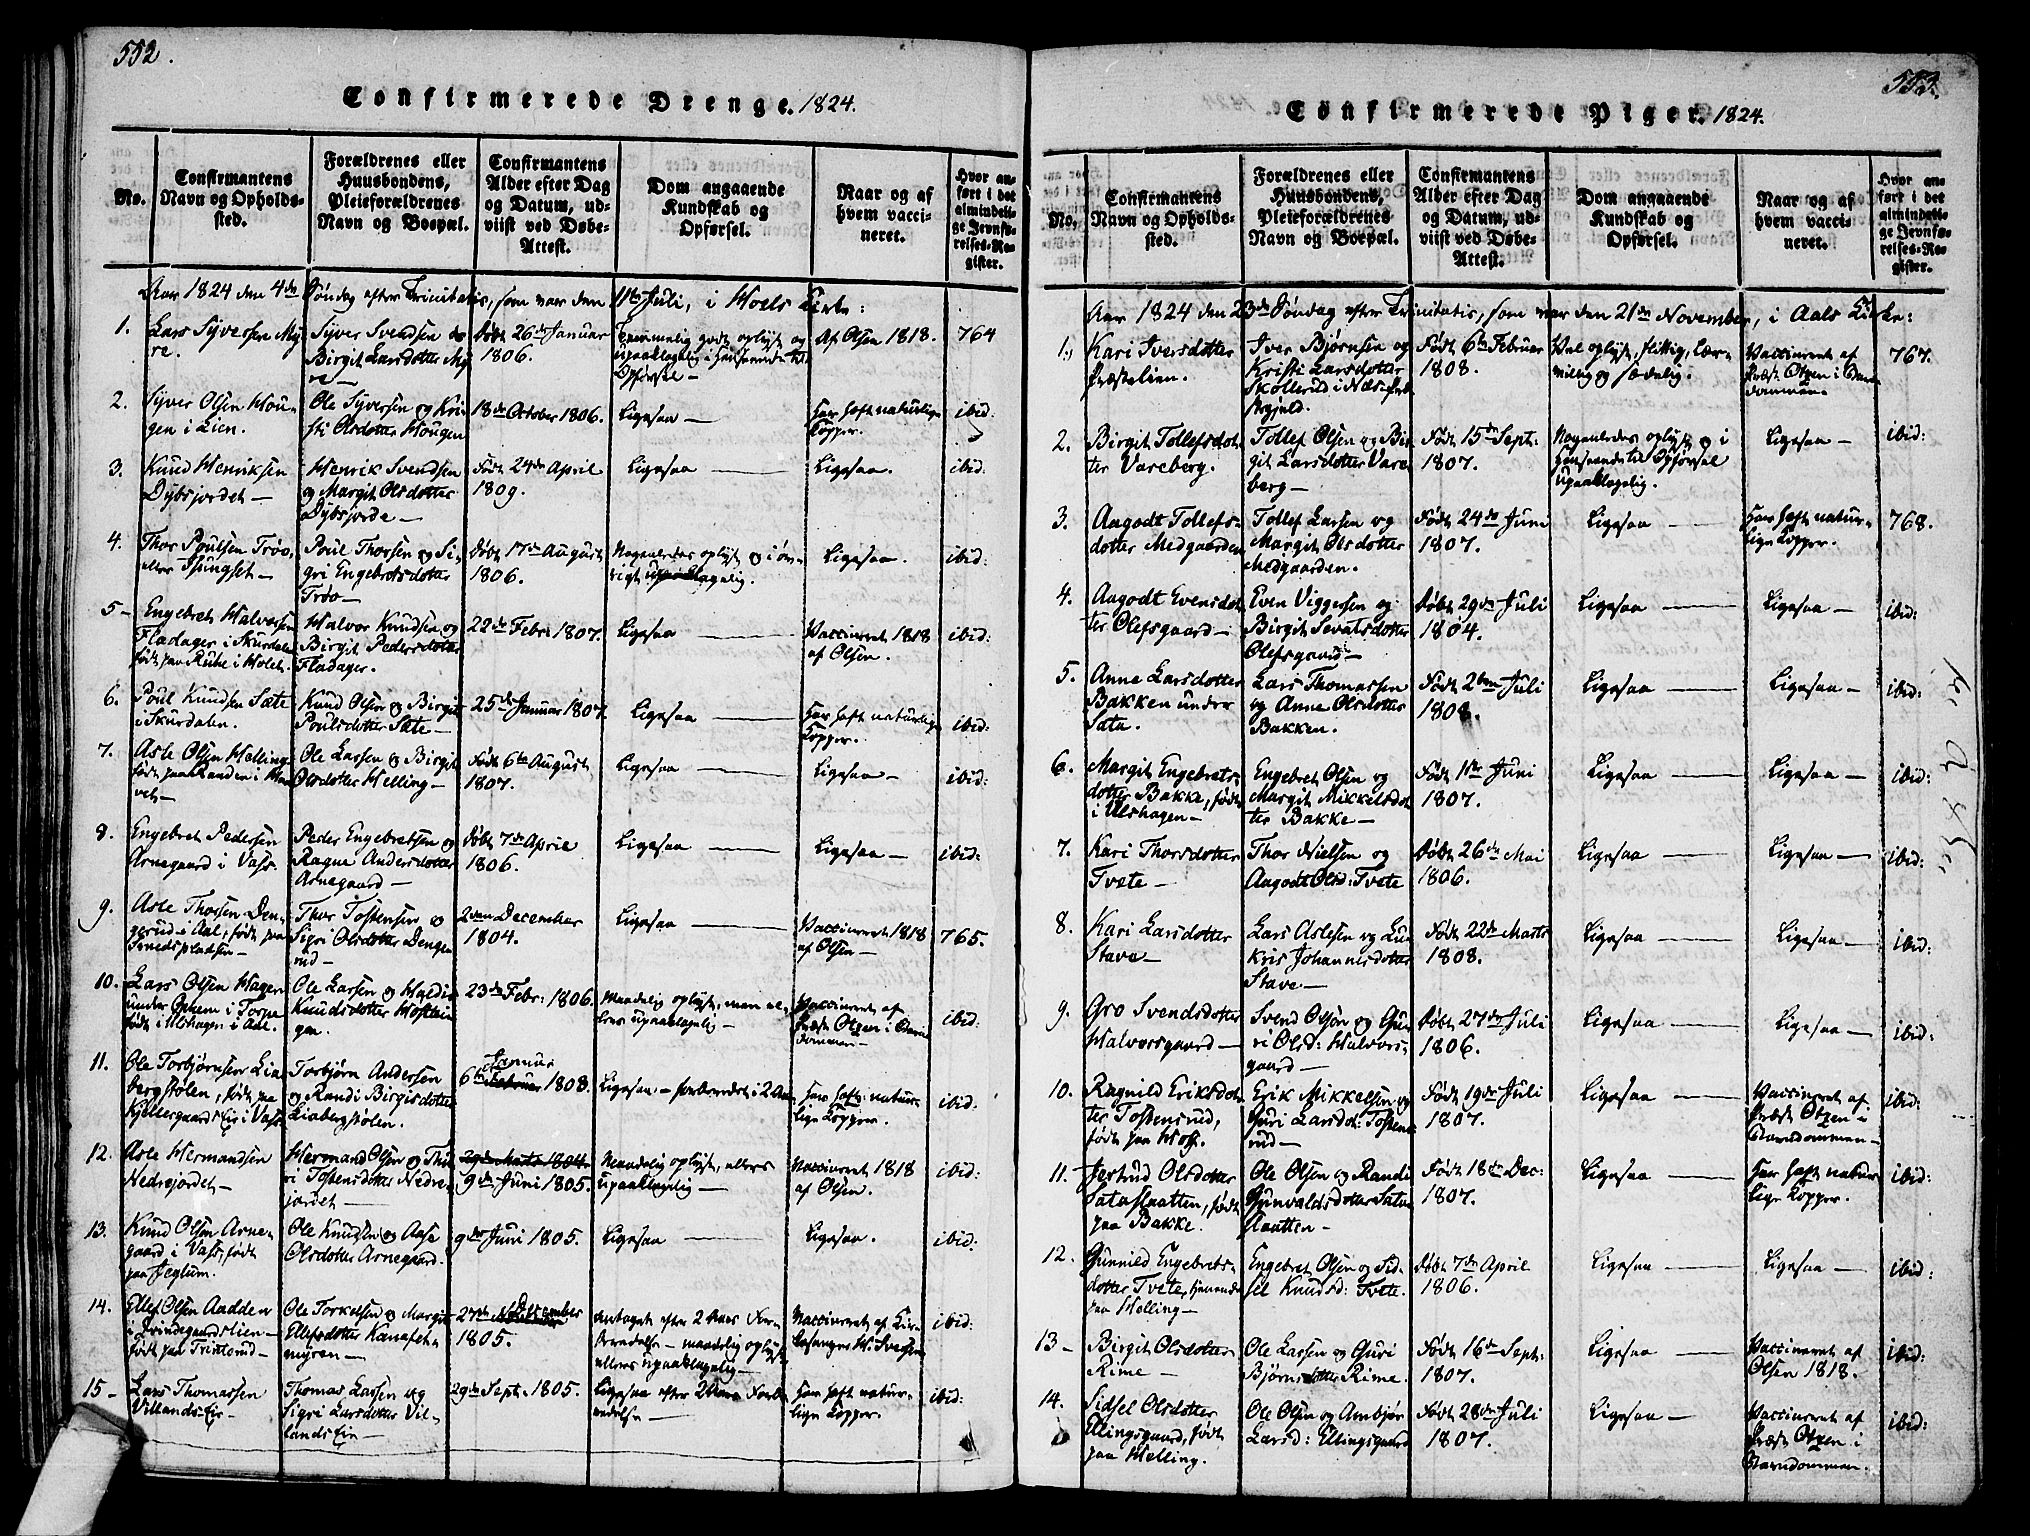 552.
Confirmerede Drenge. 1824.
No.
Confirmantens
Navn og Opholds-
sted.
Forældrenes eller
Huusbondens,
Pleieforældrenes
Navn og Boepæl.
Confirmantens
Alder efter Dag
og Datum, ud-
viist ved Døbe-
Attest.
Dom angaaende
Kundskab og
Opførsel.
Naar og af
hvem vacci-
neret.
Hvor an-
ført i det
almindeli-
ge Jevnfø-
relses-Re-
gister.
Aar 1824 den 4de Søndag efter Trinitatis, som var den 11te Juli, i Hols Kirke:
1.
Lars Syversen My-
re.
Syver Svendsen og
Birgit Larsdotter My-
re —
Døbt 26de Januar
1806.
Temmelig godt oplyst og
upaaklagelig i Henseende til
Opførsel —
Af Olsen 1818.
764
2.
Syver Olsen Hou-
gen i Lien.
Ole Syversen og Kri-
sti Olsdotter Hougen
18de October 1806.
Ligesaa —
Har haft naturlige
Kopper.
ibid:
3.
Knud Henriksen
Dybsjordet —
Henrik Svendsen
og Margit Olsdotter
Dybsjorde —
Født 24de April
1809.
Ligesaa —
Ligesaa.
ibid:
4.
Thor Poulsen Trøo,
eller Sjungset —
Poul Thorsen og Si-
gri Engebretsdotter
Trøo —
Døbt 17de August
1806.
Nogenledes oplyst og i øv-
rigt upaaklagelig.
Ligesaa.
ibid:
5 —
Engebret Halvorsen
Fladager i Skurdalen
født paa Rube i Holet.
Halvor Knudsen og
Birgit Pedersdotter
Fladager.
22de Febr: 1807.
Ligesaa —
Vaccineret 1818
af Olsen.
ibid:
6.
Poul Knudsen Sate
i Skurdalen.
Knud Olsen og Birgit
Poulsdotter Sate —
25de Januar 1807.
Ligesaa —
Har haft naturlige
Kopper.
ibid:
7.
Asle Olsen Helling
født paa Randen i Ho-
vet —
Ole Larsen og Birgit
Olsdotter Helling —
Født 6te August
1807.
Ligesaa —
Ligesaa —
ibid:
8.
Engebret Pedersen
Arnegaard i Vats.
Peder Engebretsen og
Ragne Andersdotter
Arnegaard —
Døbt 7de April
1806.
Ligesaa —
Ligesaa —
ibid:
9.
Asle Thorsen Den-
gerud i Aal, født paa
Smedspladsen —
Thor Tostensen og
Sigri Olsdotter Denge-
rud —
2den December
1804.
Ligesaa —
Vaccineret 1818
af Olsen —
765.
10.
Lars Olsen Hagen
under Opheim i Torpe
født i Ulshagen i Aal.
Ole Larsen og
Knudsdotter
gen.
23de Febr: 1806.
Maadelig oplyst, men el-
lers upaaklagelig —
Vaccineret af
Præst Otzen i Barn-
dommen —
ibid:
11.
Ole Torbjørnsen Lia-
bergstølen, født paa
Kjellergaards Eje i Vats.
Torbjørn Andersen
og Randi Birgisdotter
Liabergstølen.
Januar
6te Februar 1808.
Ligesaa — forberedet i 2 Aar
Har haft natur-
lige Kopper.
ibid:
12.
Asle Hermandsen
Nedrejordet —
Hermand Olsen og Thu-
ri Tostensdotter Nedre-
jordet —
29de Marts 1804.
9de Juni 1805.
Maadelig oplyst, ellers
upaaklagelig —
Vaccineret 1818
af Olsen.
ibid:
13.
Knud Olsen Arne-
gaard i Vats, født
paa Jeglum.
Ole Knudsen og Aase
Olsdotter Arnegaard.
9de Juni 1805.
Ligesaa —
Ligesaa.
ibid:
14.
Ellef Olsen Aadden
i Brindegaardslien —
født paa Trintrud —
Ole Torkelsen og Margit
Ellefsdotter Kanafet-
myren —
December
27de November
1805.
Antaget efter 2 Aars For-
beredelse — maadelig oplyst
ellers upaaklagelig —
Vaccineret af Kir-
kesanger H. Svendsen
ibid:
15 —
Lars Thomassen
Villands Eie —
Thomas Larsen og
Sigri Larsdotter Vil-
lands Eie —
29de Sept: 1805.
Ligesaa efter 2 Aars Forbe-
redelse —
Har haft natur-
lige Kopper.
ibid:
553.
Confirmerede Piger. 1824.
No.
Confirmantens
Navn og Opholds-
sted.
Forældrenes eller
Huusbondens,
Pleieforældrenes
Navn og Boepæl.
Confirmantens
Alder efter Dag
og Datum, ud-
viist ved Døbe-
Attest.
Dom angaaende
Kundskab og
Opførsel.
Naar og af
hvem vacci-
neret.
Hvor an-
ført i det
almindeli-
ge Jevnfø-
relses-Re-
gister.
Aar 1824 den 23de Søndag efter Trinitatis, som var den 21de November, i Aals Kirke:
1.
Kari Iversdotter
Præstelien.
Iver Bjørnsen og
Kristi Larsdotter
Skollerud i Næs Præ-
stegjeld.
Født 6te Februar
1808.
Vel oplyst, flittig, lær-
villig og sædelig.
Vaccineret af
Præst Otzen i Barn-
dommen —
767.
2.
Birgit Tollefsdot-
ter Vareberg.
Tollef Olsen og Bir-
git Larsdotter Vare-
berg —
Født 15de Sept:
1807.
Nogenledes oplyst og i
Henseende til Opførsel
upaaklagelig.
Ligesaa —
ibid:
3.
Aagodt Tollefs-
dotter Medgaarden
Tollef Larsen og
Margit Olsdotter
Medgaarden.
Født 24de Juni
1807.
Ligesaa —
Har haft natur-
lige Kopper.
768.
4.
Aagodt Evensdot-
ter Olefsgaard —
Even Viggersen og
Birgit Sevatsdotter
Olefsgaard —
Døbt 29de Juli
1804.
Ligesaa —
Ligesaa —
ibid:
5.
Anna Larsdotter
Bakken under
Sata.
Lars Thomassen
og Anne Olsdotter
Bakken.
Født 2den Juli
1808.
Ligesaa —
Ligesaa —
ibid:
6.
Margit Engebrets-
dotter Bakke, født
i Ulshagen —
Engebret Olsen og
Margit Mikkelsdot-
ter Bakke —
Født 11te Juni
1807.
Ligesaa —
Ligesaa —
ibid:
7.
Kari Thorsdotter
Tvete —
Thor Nielsen og
Aagodt Olsd: Tvete
Døbt 26de Mai
1806.
Ligesaa —
Ligesaa —
ibid:
8.
Kari Larsdotter
Stave —
Lars Aslesen og Lu-
kris Johannisdotter
Stave —
Født 22de Marts
1808.
Ligesaa —
Ligesaa —
ibid:
9.
Gro Svendsdotter
Halvorsgaard —
Svend Olsøn og Gu-
ri Olsd: Halvors-
gaard —
Døbt 27de Juli
1806.
Ligesaa —
Ligesaa —
ibid:
10.
Ragnild Eriksdot-
ter Tostensrud,
født paa Hoff.
Erik Mikkelsen og
Guri Larsdot: Tostens-
rud —
Født 19de Juli
1807.
Ligesaa —
Vaccineret af
Præst Otzen i
Barndommen —
ibid:
11.
Jertrud Olsdotter
Sataslaatten, født
paa Bakke.
Ole Olsen og Randi
Gunvaldsdotter Sata-
slaatten —
Født 18de Dec:
1807.
Ligesaa —
Har haft natur-
lige Kopper.
ibid:
12.
Gunnild Engebrets-
dotter Tvete, hjemme
paa Helling —
Engebret Olsen og Sid-
sel Knudsd: Tvete.
Døbt 7de April
1806.
Ligesaa —
Ligesaa —
ibid:
13 —
Birgit Olsdotter
Rime —
Ole Larsen og Guri
Bjørnsdotter Rime.
Født 16de Sept:
1807.
Ligesaa —
Vaccineret af
Olsen 1818.
ibid:
14.
Sidsel Olsdotter
Ellingsgaard, født
paa Helling.
Ole Olsen og Ambjør
Larsd: Ellingsgaard
Født 28de Juli
1807.
Ligesaa —
Vaccineret af
Præst Otzen i
Barndommen.
ibid: